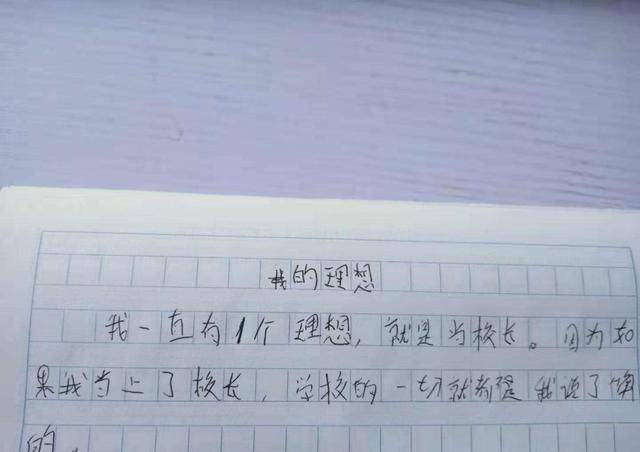 我的理想
我一直有1个理想，就是当校长。因为如
果我当上了校长，学校的一切就都是我说了算
的。